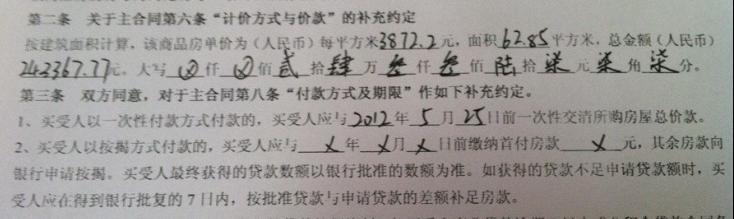 第二条 关于主合同第六条“计价方式与价款”的补充约定
按建筑面积计算，该商品房单价为（人民币）每平方米3872.2元，面积62.85平方米，总金额（人民币）
243367.77元，大写 ⊗ 仟 ⊗ 佰 贰 拾 肆 万 叁 仟 叁 佰 陆 拾 柒 元 柒 角 柒 分。
第三条 双方同意，对于主合同第八条“付款方式及期限”作如下补充约定。
1、买受人以一次性付款方式付款的，买受人应与 2012 年 5 月 25 日前一次性交清所购房屋总价款。
2、买受人以按揭方式付款的，买受人应与 X 年 X 月 X 日前缴纳首付房款 X 元，其余房款向
银行申请按揭。买受人最终获得的贷款数额以银行批准的数额为准。如获得的贷款不足申请贷款额时，买
受人应在得到银行批复的 7 日内，按批准贷款与申请贷款的差额补足房款。